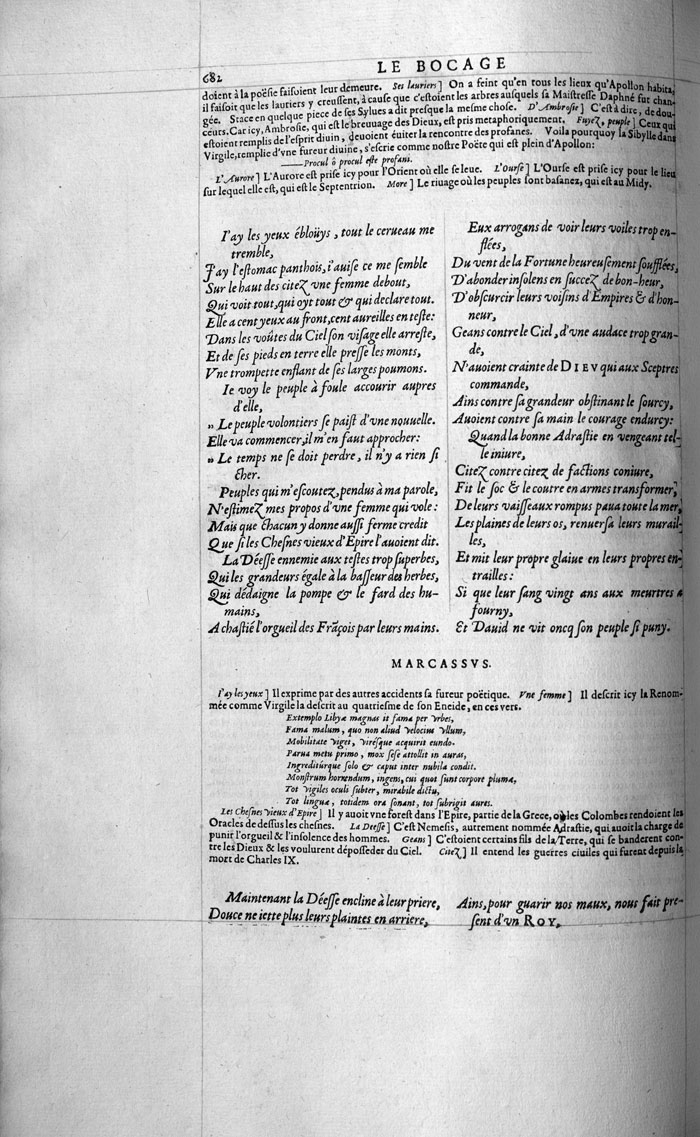 682
LE BOCAGE
doient à la poësie faisoient leur demeure. Ses lauriers] On a feint qu'en tous les lieux qu'Apollon habita,
il faisoit que les lautiers y creussent, à cause que c'estoient les arbres ausquels sa Maistresse Daphné fut chan-
gée. Stace en quelque piece de ses Sylues a dit presque la mesme chose. D'Ambrosie] C'est à dire, de dou-
ceurs. Car icy, Ambrosie, qui est le breuuage des Dieux, est pris metaphoriquement. Fuyez, peuple] Ceux qui
estoient remplis de l'esprit diuin, deuoient éuiter la rencontre des profanes. Voila pourquoy la Sibylle dans
Virgile, remplie d'vne fureur diuine, s'escrie comme nostre Poëte qui est plein d'Apollon:
——Procul ô procul este profani.
L'Aurore] L'Aurore est prise icy pour l'Orient où elle se leue. L'Ourse] L'Ourse est prise icy pour le lieu
sur lequel elle est, qui est le Septentrion. More] Le riuage où les peuples sont basanez, qui est au Midy.
I'ay les yeux éblouys, tout le cerueau me
tremble,
J'ay l'estomac panthois, i'auise ce me semble
Sur le haut des citez vne femme debout,
Qui voit tout, qui oyt tout & qui declare tout.
Elle a cent yeux au front, cent aureilles en teste:
Dans les voûtes du Ciel son visage elle arreste,
Et de ses pieds en terre elle presse les monts,
Vne trompette enflant de ses larges poumons.
Ie voy le peuple à foule accourir aupres
d'elle,
» Le peuple volontiers se paist d'vne nouuelle.
Elle va commencer, il m'en faut approcher:
» Le temps ne se doit perdre, il n'y a rien si
cher.
Peuples qui m'escoutez, pendus à ma parole,
N'estimez mes propos d'vne femme qui vole:
Mais que chacun y donne aussi ferme credit
Que si les Chesnes vieux d'Epire l'auoient dit.
La Déesse ennemie aux testes trop superbes,
Qui les grandeurs égale à la basseur des herbes,
Qui dédaigne la pompe & le fard des hu-
mains,
A chastié l'orgueil des Frãçois par leurs mains.
Eux arrogans de voir leurs voiles trop en-
flées,
Du vent de la Fortune heureusement soufflées,
D'abonder insolens en succez de bon-heur,
D'obscurcir leurs voisins d'Empires & d'hon-
neur,
Geans contre le Ciel, d'vne audace trop gran-
de,
N'auoient crainte de DIEV qui aux Sceptres
commande,
Ains contre sa grandeur obstinant le sourcy,
Auoient contre sa main le courage endurcy:
Quand la bonne Adrastie en vengeant tel-
le iniure,
Citez contre citez de factions coniure,
Fit le soc & le coutre en armes transformer,
De leurs vaisseaux rompus paua toute la mer,
Les plaines de leurs os, renuersa leurs murail-
les,
Et mit leur propre glaiue en leurs propres en-
trailles:
Si que leur sang vingt ans aux meurtres a
fourny,
Et Dauid ne vit oncq son peuple si puny.
MARCASSVS.
I'ay les yeux] Il exprime par des autres accidents sa fureur poëtique. Vne femme] Il descrit icy la Renom-
mée comme Virgile la descrit au quatriesme de son Eneide, en ces vers.
Extemplo Libyæ magnas it fama per vrbes,
Fama malum, quo non aliud velocius vllum,
Mobilitate viget, virésque acquirit eundo.
Parua metu primo, mox sese attollit in auras,
Ingreditúrque solo & caput inter nubila condit.
Monstrum horrendum, ingens, cui quot sunt corpore plumæ,
Tot vigiles oculi subter, mirabile dictu,
Tot linguæ, totidem ora sonant, tot subrigit aures.
Les Chesnes vieux d'Epire] Il y auoit vne forest dans l'Epire, partie de la Grece, où les Colombes rendoient les
Oracles de dessus les chesnes. La Déesse] C'est Nemesis, autrement nommée Adrastie, qui auoit la charge de
punir l'orgueil & l'insolence des hommes. Geans] C'estoient certains fils de la Terre, qui se banderent con-
tre les Dieux & les voulurent déposseder du Ciel. Citez] Il entend les guerres ciuiles qui furent depuis la
mort de Charles IX.
Maintenant la Déesse encline à leur priere,
Douce ne iette plus leurs plaintes en arriere,
Ains, pour guarir nos maux, nous fait pre-
sent d'vn ROY,